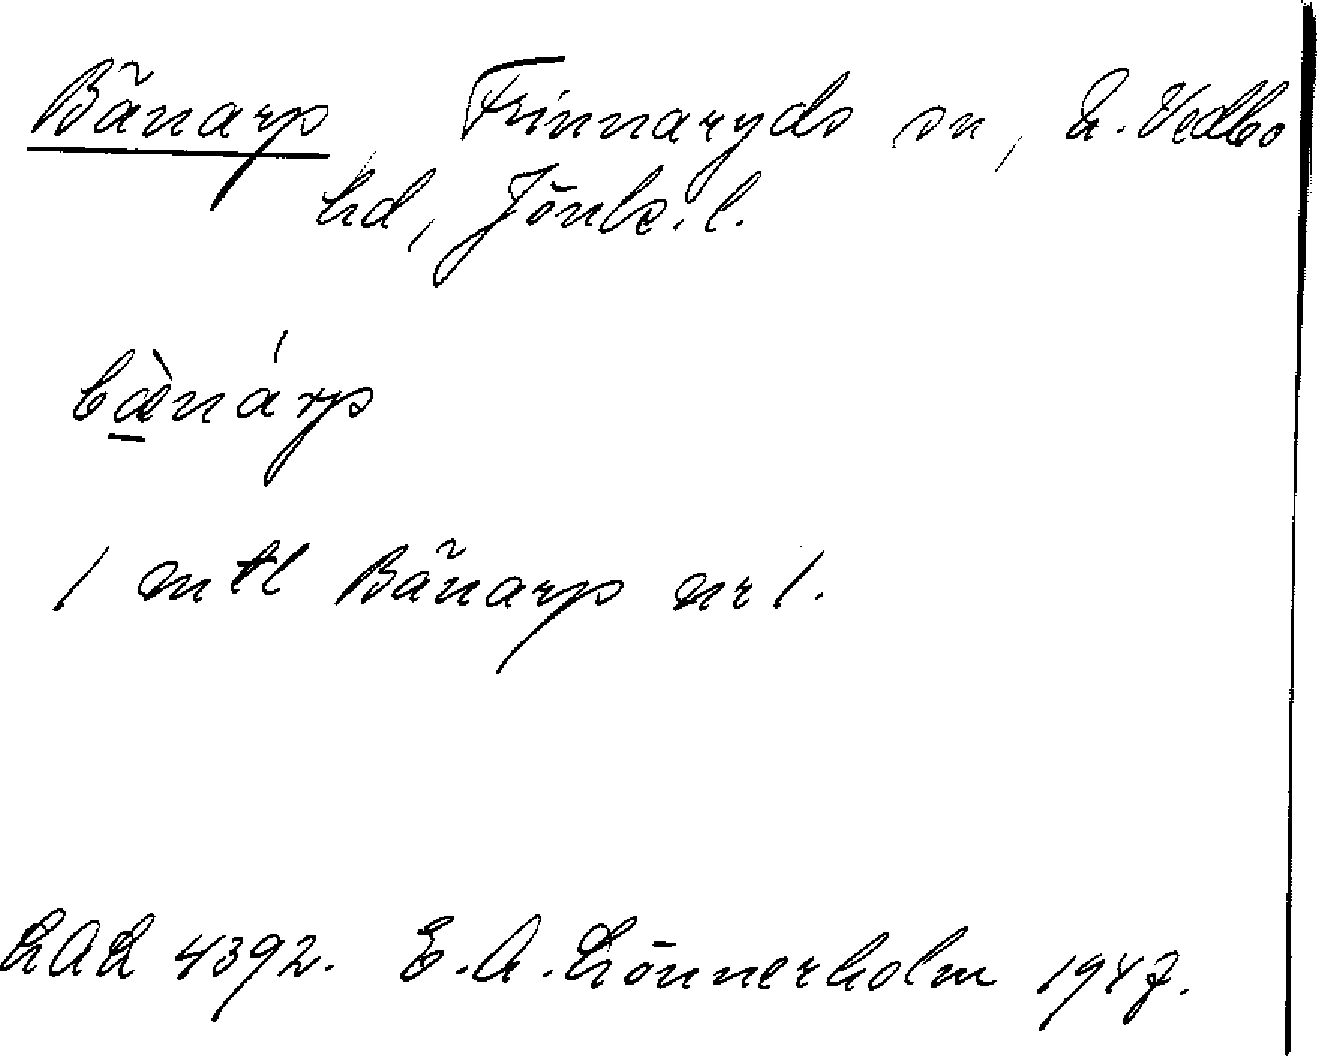 Bänarp, Frinnaryds sn, N. Vedbo
hd, Jönk. l.
bæ̠̀nárp
1 mtl Bänarp nr 1.
LAL 4392. E. A. Lönnerholm 1947.